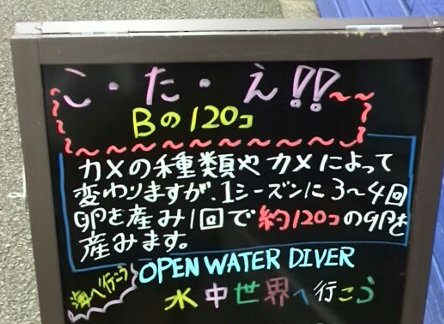 こ・た・え!!
Bの120コ
カメの種類やカメによって
変わりますが、1シーズンに3～4回
卵を産み1回で約120コの卵を
産みます。
海へ行こう
OPEN WATER DIVER
水中世界へ行こう